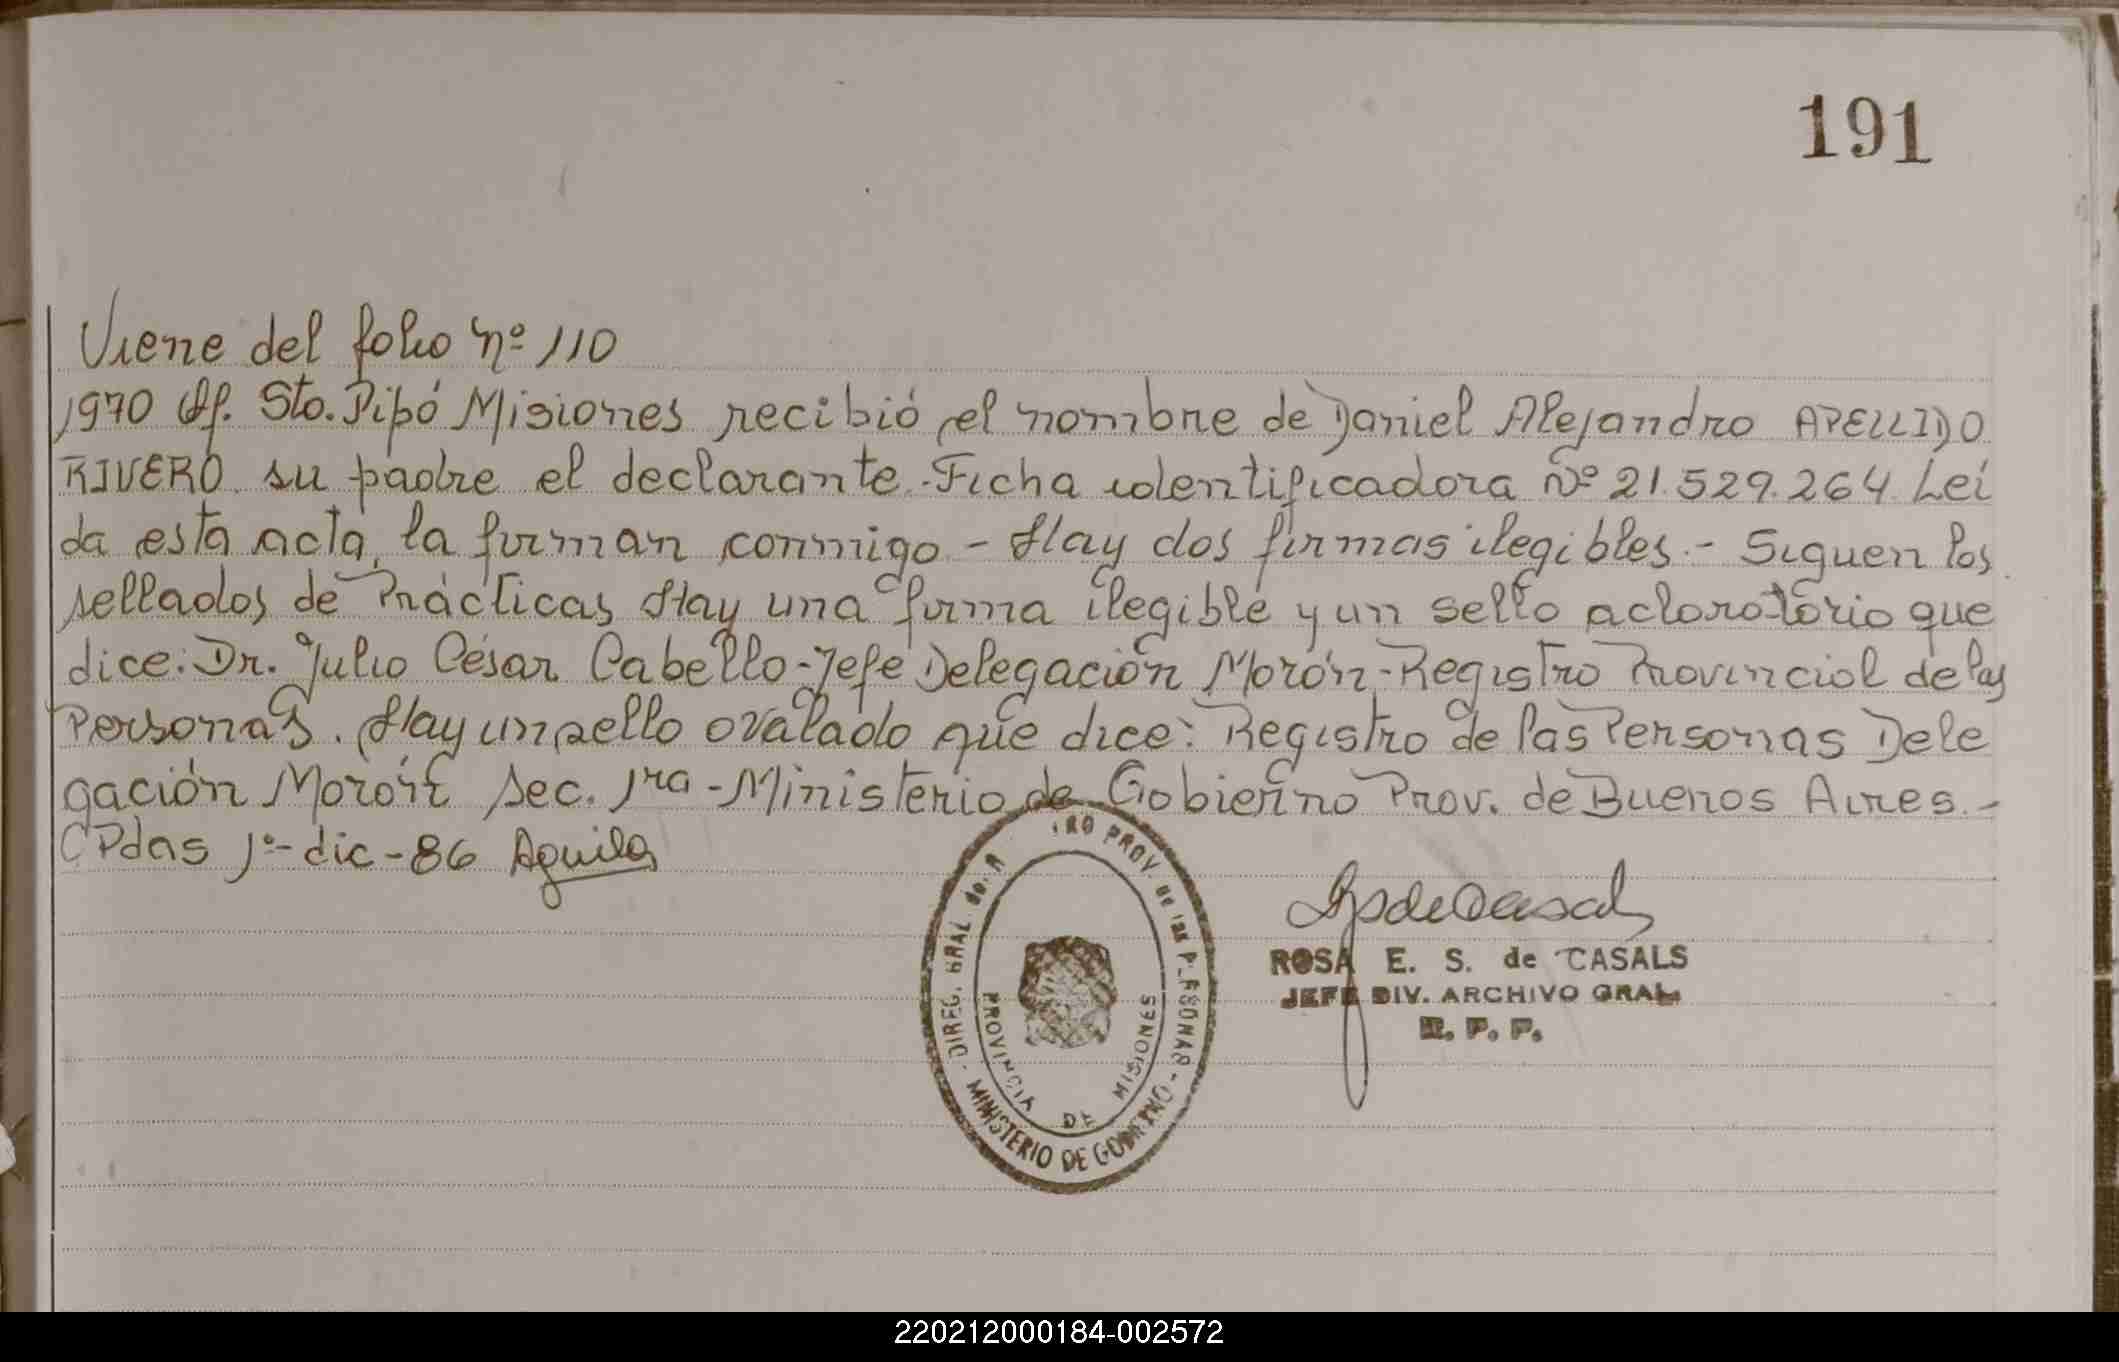 191
Viene del folio nº 110
1970 Of. Sto. Pipó Misiones recibió el nombre de Daniel Alejandro APELLIDO
RIVERO su padre el declarante.-Ficha identificadora Nº 21.529.264. Leí
da esta acta, la firman conmigo - Hay dos firmas ilegibles.- Siguen los
sellados de Prácticas Hay una firma ilegible y un sello aclaratorio que
dice: Dr. Julio César Cabello-Jefe Delegación Morón-Registro Provincial de las
Personas. Hay un sello ovalado que dice: Registro de las Personas Dele
gación Morón sec. 1ra - Ministerio de Gobierno Prov. de Buenos Aires.-
CPdas 1º-dic-86 Aguila
DIREG. GRAL. del R TRO PROV. de las PERSONAS - MINISTERIO DE GOBIERNO -
PROVINCIA DE MISIONES
ROSA E. S. de CASALS
JEFE DIV. ARCHIVO GRAL
R. P. P.
220212000184-002572